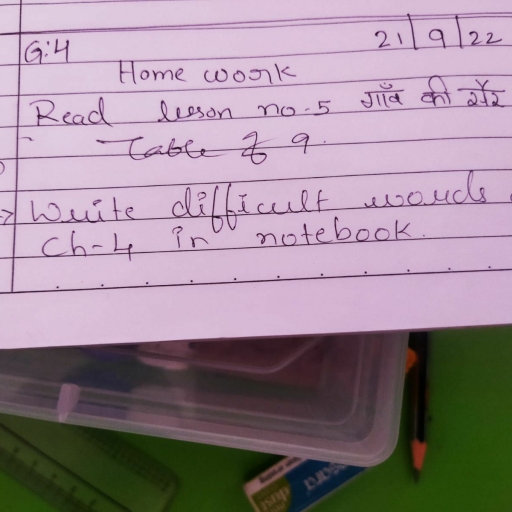 G:4 21/9/22
Home work
Read lesson no.5 गाँव की सैर
Table of 9.
→ Write difficult words
Ch-4 in notebook.